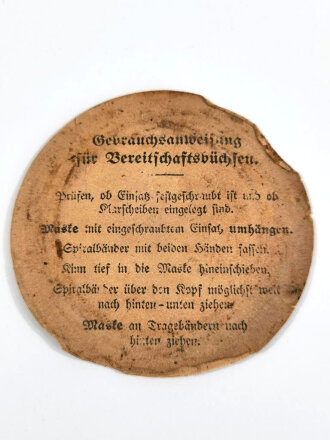 Gebrauchsanweisung
für Bereitschaftsbüchsen.
Prüfen, ob Einsatz festgeschraubt ist und ob
Klarscheiben eingelegt sind.
Maske mit eingeschraubtem Einsatz umhängen.
Spiralbänder mit beiden Händen fassen.
Kinn tief in die Maske hineinschieben.
Spiralbänder über den Kopf möglichst weit
nach hinten-unten ziehen.
Maske an Tragebändern nach
hinten ziehen.